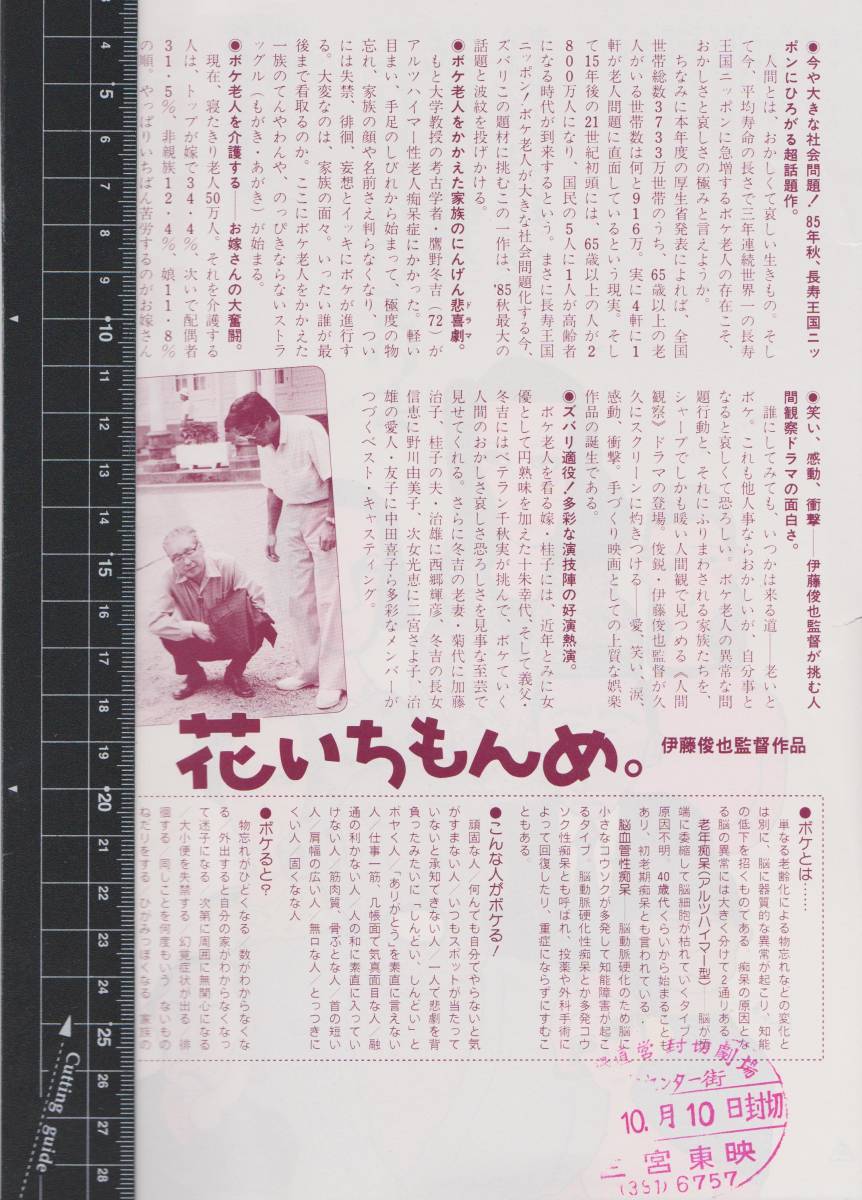 ●今や大きな社会問題！85年秋、長寿王国ニッ
ポンにひろがる超話題作。
人間とは、おかしくて哀しい生きもの。そし
て今、平均寿命の長さで三年連続世界一の長寿
王国ニッポンに急増するボケ老人の存在こそ、
おかしさと哀しさの極みと言えようか。
ちなみに本年度の厚生省発表によれば、全国
世帯総数3733万世帯のうち、65歳以上の老
人がいる世帯数は何と916万。実に4軒に1
軒が老人問題に直面しているという現実。そし
て15年後の21世紀初頭には、65歳以上の人が2
800万人になり、国民の5人に1人が高齢者
になる時代が到来するという。まさに長寿王国
ニッポン！ボケ老人が大きな社会問題化する今、
ズバリこの題材に挑むこの一作は、'85秋最大の
話題と波紋を投げかける。
●ボケ老人をかかえた家族のにんげん悲喜劇。
ドラマ
もと大学教授の考古学者・鷹野冬吉（72）が
アルツハイマー性老人痴呆症にかかった。軽い
目まい、手足のしびれから始まって、極度の物
忘れ、家族の顔や名前さえ判らなくなり、つい
には失禁、徘徊、妄想とイッキにボケが進行す
る。大変なのは、家族の面々。いったい誰が最
後まで看取るのか。ここにボケ老人をかかえた
一族のてんやわんや、のっぴきならないストラ
ッグル（もがき・あがき）が始まる。
●ボケ老人を介護する──お嫁さんの大奮闘。
現在、寝たきり老人50万人。それを介護する
人は、トップが嫁で34・4％、次いで配偶者
31・5％、非親族12・4％、娘11・8％
の順。やっぱりいちばん苦労するのがお嫁さん
●笑い、感動、衝撃──伊藤俊也監督が挑む人
間観察ドラマの面白さ。
誰にしてみても、いつかは来る道──老いと
ボケ。これも他人事ならおかしいが、自分事と
なると哀しくて恐ろしい。ボケ老人の異常な問
題行動と、それにふりまわされる家族たちを、
シャープでしかも暖い人間観で見つめる《人間
観察》ドラマの登場。俊鋭・伊藤俊也監督が久
久にスクリーンに灼きつける──愛、笑い、涙、
感動、衝撃。手づくり映画としての上質な娯楽
作品の誕生である。
●ズバリ適役！多彩な演技陣の好演熱演。
ボケ老人を看る嫁・桂子には、近年とみに女
優として円熟味を加えた十朱幸代、そして義父・
冬吉にはベテラン千秋実が挑んで、ボケていく
人間のおかしさ哀しさ恐ろしさを見事な至芸で
見せてくれる。さらに冬吉の老妻・菊代に加藤
治子、桂子の夫・治雄に西郷輝彦、冬吉の長女
信恵に野川由美子、次女光恵に二宮さよ子、治
雄の愛人・友子に中田喜子ら多彩なメンバーが
つづくベスト・キャスティング。
花いちもんめ。
伊藤俊也監督作品
●ボケとは……
単なる老齢化による物忘れなどの変化と
は別に、脳に器質的な異常が起こり、知能
の低下を招くものである 痴呆の原因とな
る脳の異常には大きく分けて2通りある
老年痴呆（アルツハイマー型）──脳が極
端に委縮して脳細胞が枯れていくタイプ
原因不明 40歳代くらいから始まることも
あり、初老期痴呆とも言われている
脳血管性痴呆──脳動脈硬化のため脳に
小さなコウソクが多発して知能障害が起こ
るタイプ 脳動脈硬化性痴呆とか多発コウ
ソク性痴呆とも呼ばれ、投薬や外科手術に
よって回復したり、重症にならずにすむこ
ともある
●こんな人がボケる！
頑固な人／何んでも自分でやらないと気
がすまない人／いつもスポットが当たって
いないと承知できない人／一人で悲劇を背
負ったみたいに「しんどい、しんどい」と
ボヤく人／「ありがとう」を素直に言えない
人／仕事一筋、几帳面で気真面目な人／融
通の利かない人／人の和に素直に入ってい
けない人／筋肉質、骨ぶとな人／首の短い
人／肩幅の広い人／無口な人／とっつきに
くい人／固くなな人
●ボケると？
物忘れがひどくなる／数がわからなくな
る／外出すると自分の家がわからなくなっ
て迷子になる／次第に周囲に無関心になる
／大小便を失禁する／幻覚症状が出る／徘
徊する／同じことを何度もいう／ないもの
ねだりをする／ひがみっぽくなる／家族の
直営封切劇場
センター街
10.月10日封切
三宮東映
(391)6757
3
4
5
6
7
8
9
10
11
12
13
14
15
16
17
18
19
20
21
22
23
24
25
26
27
28
Cutting guide